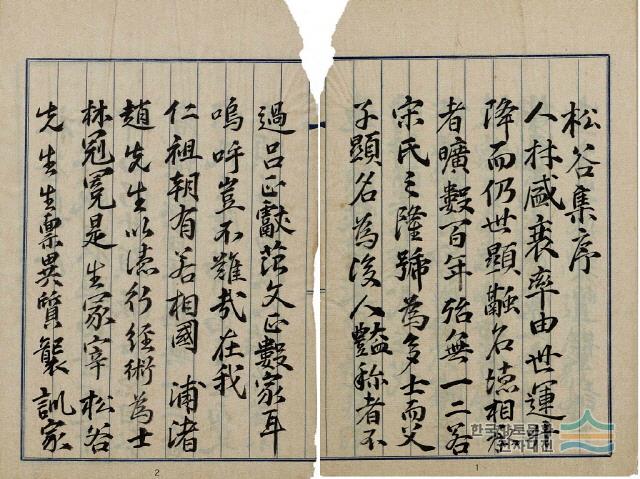 松谷集序
人材盛衰率由世運升
降而仍世顯融名德相
者曠數百年殆無一二若
宋氏之隆號為多士而父
子顯名為後人豔稱者不
1
過呂正獻范文正數家耳
嗚呼豈不難哉在我
仁祖朝有若相國 浦渚
趙先生以德行經術為士
林冠冕是生冢宰 松谷
先生生稟異質襲訓家
2
한국향토문화
전자대전